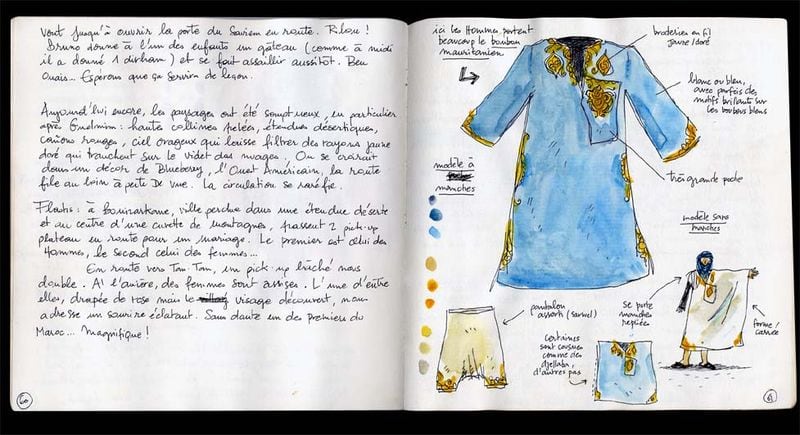 Vont jusqu'à ouvrir la porte du Saviem en route. Relou !
Bruno donne à l'un des enfants un gâteau (comme à midi
il a donné 1 dirham) et se fait assaillir aussitôt. Ben
Ouais... Espérons que ça servira de leçon.
Aujourd'hui encore, les paysages ont été somptueux, en particulier
après Guelmim : hautes collines pelées, étendues désertiques,
canyons rouges, ciel orageux qui laisse filtrer des rayons jaune
doré qui tranchent sur le violet des nuages. On se croirait
dans un décor de Blueberry, l'Ouest Américain, la route
file au loin à perte de vue. La circulation se raréfie.
Flashs : à Bouizarkane, ville perchée dans une étendue déserte
et au centre d'une cuvette de montagnes, passent 2 pick-up
plateau en route pour un mariage. Le premier est celui des
Hommes, le second celui des femmes...
En route vers Tan Tan, un pick up bâché nous
double. A l'arrière, des femmes sont assises. L'une d'entre
elles, drapée de rose mais le visage découvert, nous
adresse un sourire éclatant. Sans doute un des premiers du
Maroc... Magnifique !
60
ici les Hommes portent
beaucoup le boubou
mauritanien
broderies en fil
jaune/doré
blanc ou bleu,
avec parfois des
motifs brillants sur
les boubous bleus
très grande poche
modèle à
manches
modèle sans
manches
pantalon
assorti (sarouel)
se porte
manches
repliées
forme
carrée
certaines
sont cousues
comme des
djellaba,
d'autres pas
61